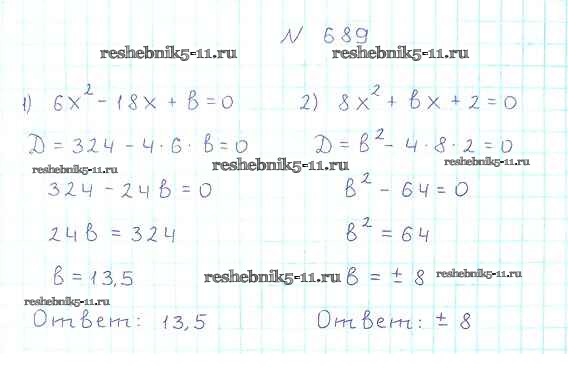 № 689
reshebnik5-11.ru reshebnik5-11.ru
1) 6x² - 18x + в = 0
Д = 324 - 4·6·в = 0
reshebnik5-11.ru
324 - 24в = 0
24в = 324
в = 13,5
reshebnik5-11.ru
Ответ: 13,5
2) 8x² + вx + 2 = 0
Д = в² - 4·8·2 = 0
reshebnik5-11.ru reshebnik5-11.ru
в² - 64 = 0
в² = 64
reshebnik5-11.ru в = ± 8 reshebnik5-11.ru
Ответ: ± 8